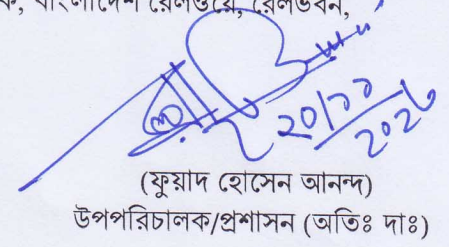 বাংলাদেশ রেলওয়ে, রেলভবন,
২০/১১
(ফুয়াদ হোসেন আনন্দ)
উপপরিচালক/প্রশাসন (অতিঃ দাঃ)